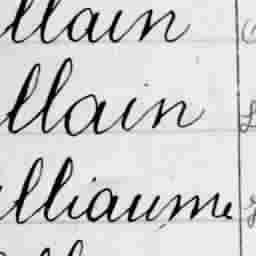 llain
llain
lliaume